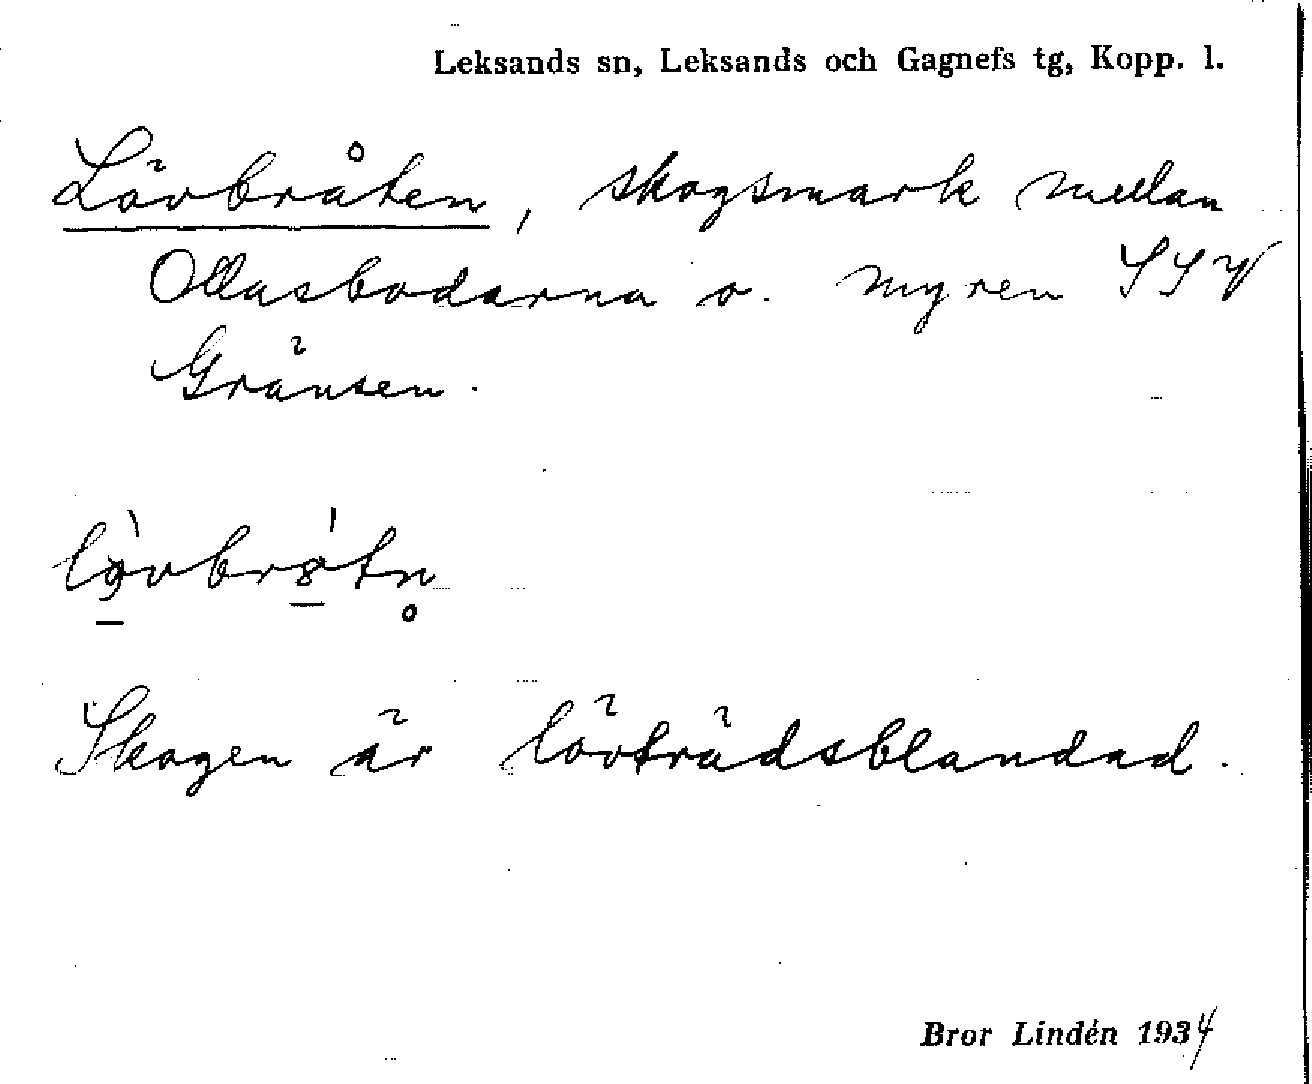 Leksands sn, Leksands och Gagnefs tg, Kopp. l.
Lövbråten, skogsmark mellan
Ollasbodarna o. myren SSV
Gränsen.
Skogen är lövträdsblandad.
Bror Lindén 1934